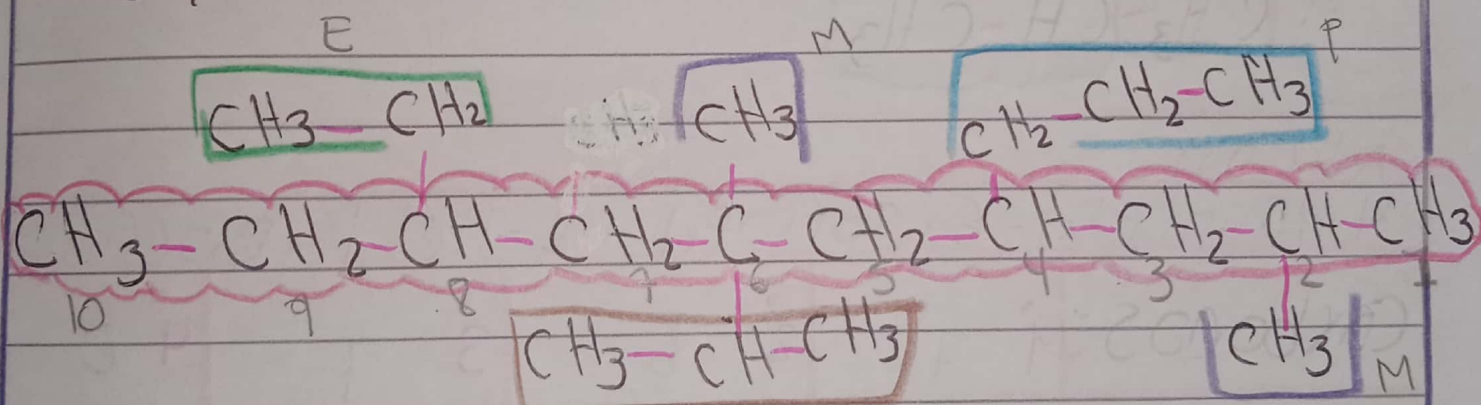 E M P
CH3—CH2 CH3 CH2-CH2-CH3
CH3-CH2-CH-CH2-C-CH2-CH-CH2-CH-CH3
10 9 8 7 6 5 4 3 2 1
CH3-CH-CH3 CH3 M